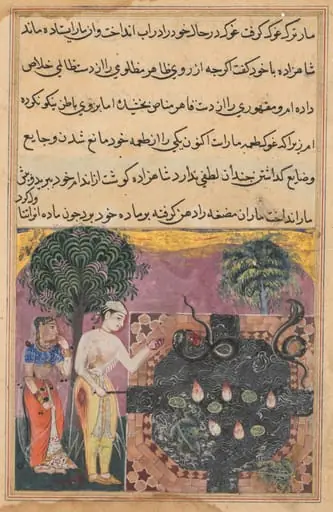 مار ترک غوک گرفت غوک در حال خود را در آب انداخت و از مار ایستاده ماند
شاهزاده با خود گفت اگرچه از روی ظاهر مظلومی را از دست ظالمی خلاص
داده ام و مقهوری را از دست قاهر مناص بخشیده اما بروی باطن نیکو نکرده
ام زیرا که غوک طعمه مار است اکنون یکی را از طعمه خود مانع شدن و جایع
و ضایع گذاشتن چندان لطفی ندارد شاهزاده گوشت از اندام خود ببرید و پیش
مار انداخت مار آن مضغه را دهن گرفته بر ماده خود برد چون ماده از